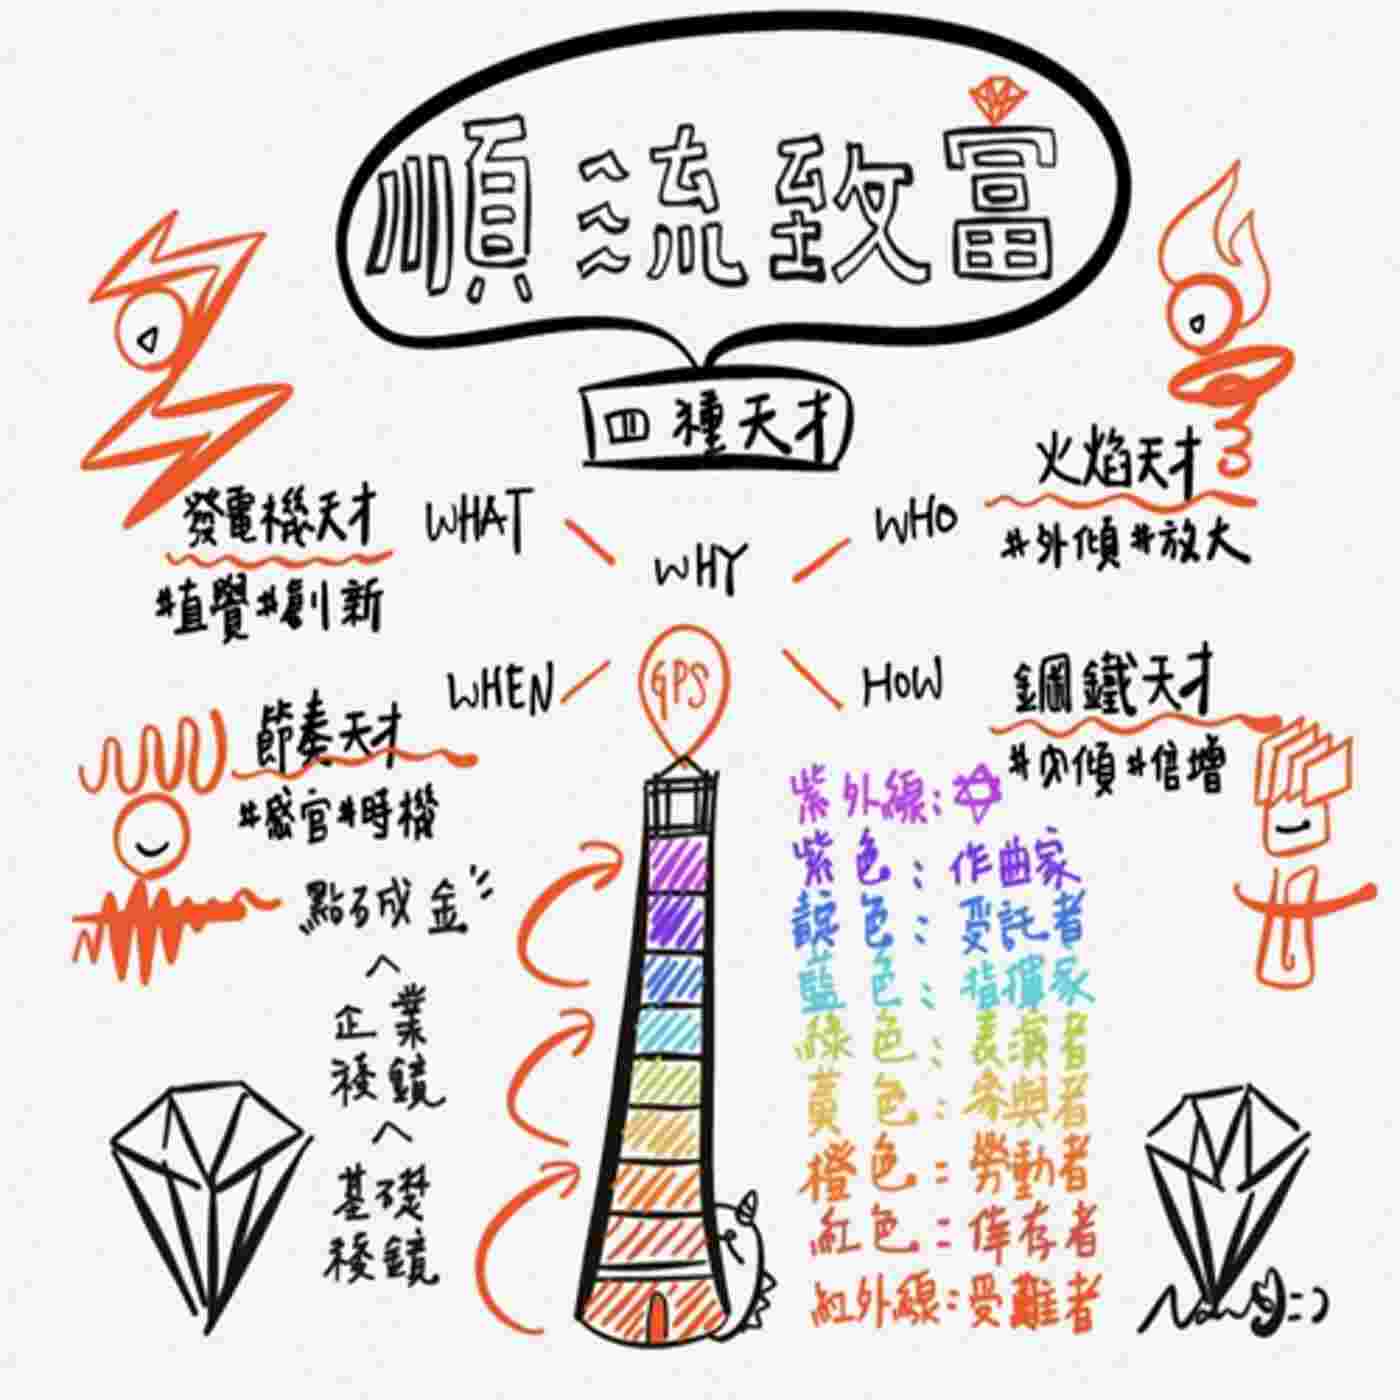 順流致富
四種天才
發電機天才
#直覺#創新
WHAT
WHY
WHO
火焰天才
#外傾#放大
WHEN
GPS
HOW
節奏天才
#感官#時機
鋼鐵天才
#內傾#倍增
點石成金
企業
稜鏡
基礎
稜鏡
紫外線:
紫色:作曲家
靛色:受託者
藍色:指揮家
綠色:表演者
黃色:參與者
橙色:勞動者
紅色:倖存者
紅外線:受難者